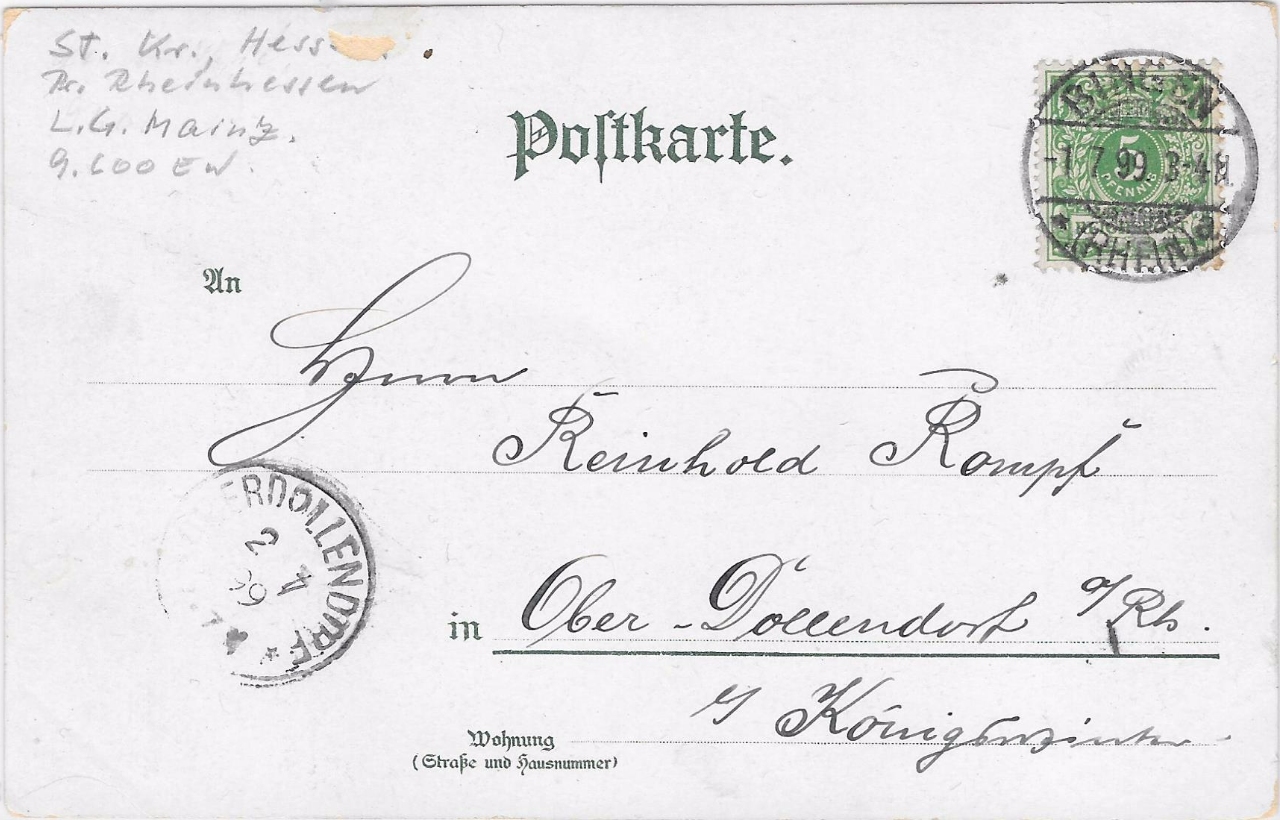 St. Kr., Hess
Pr. Rheinhessen
L.G. Mainz.
9.600 EW.
Postkarte.
BINGEN
-1 7 99 3-4N.
* (RHEIN)
5
PFENNIG
An
Herrn
Reinhold Rompf
OBERDOLLENDORF
2 7
99
in Ober-Dollendorf a/Rh.
b/ Königswinter
Wohnung
(Straße und Hausnummer)